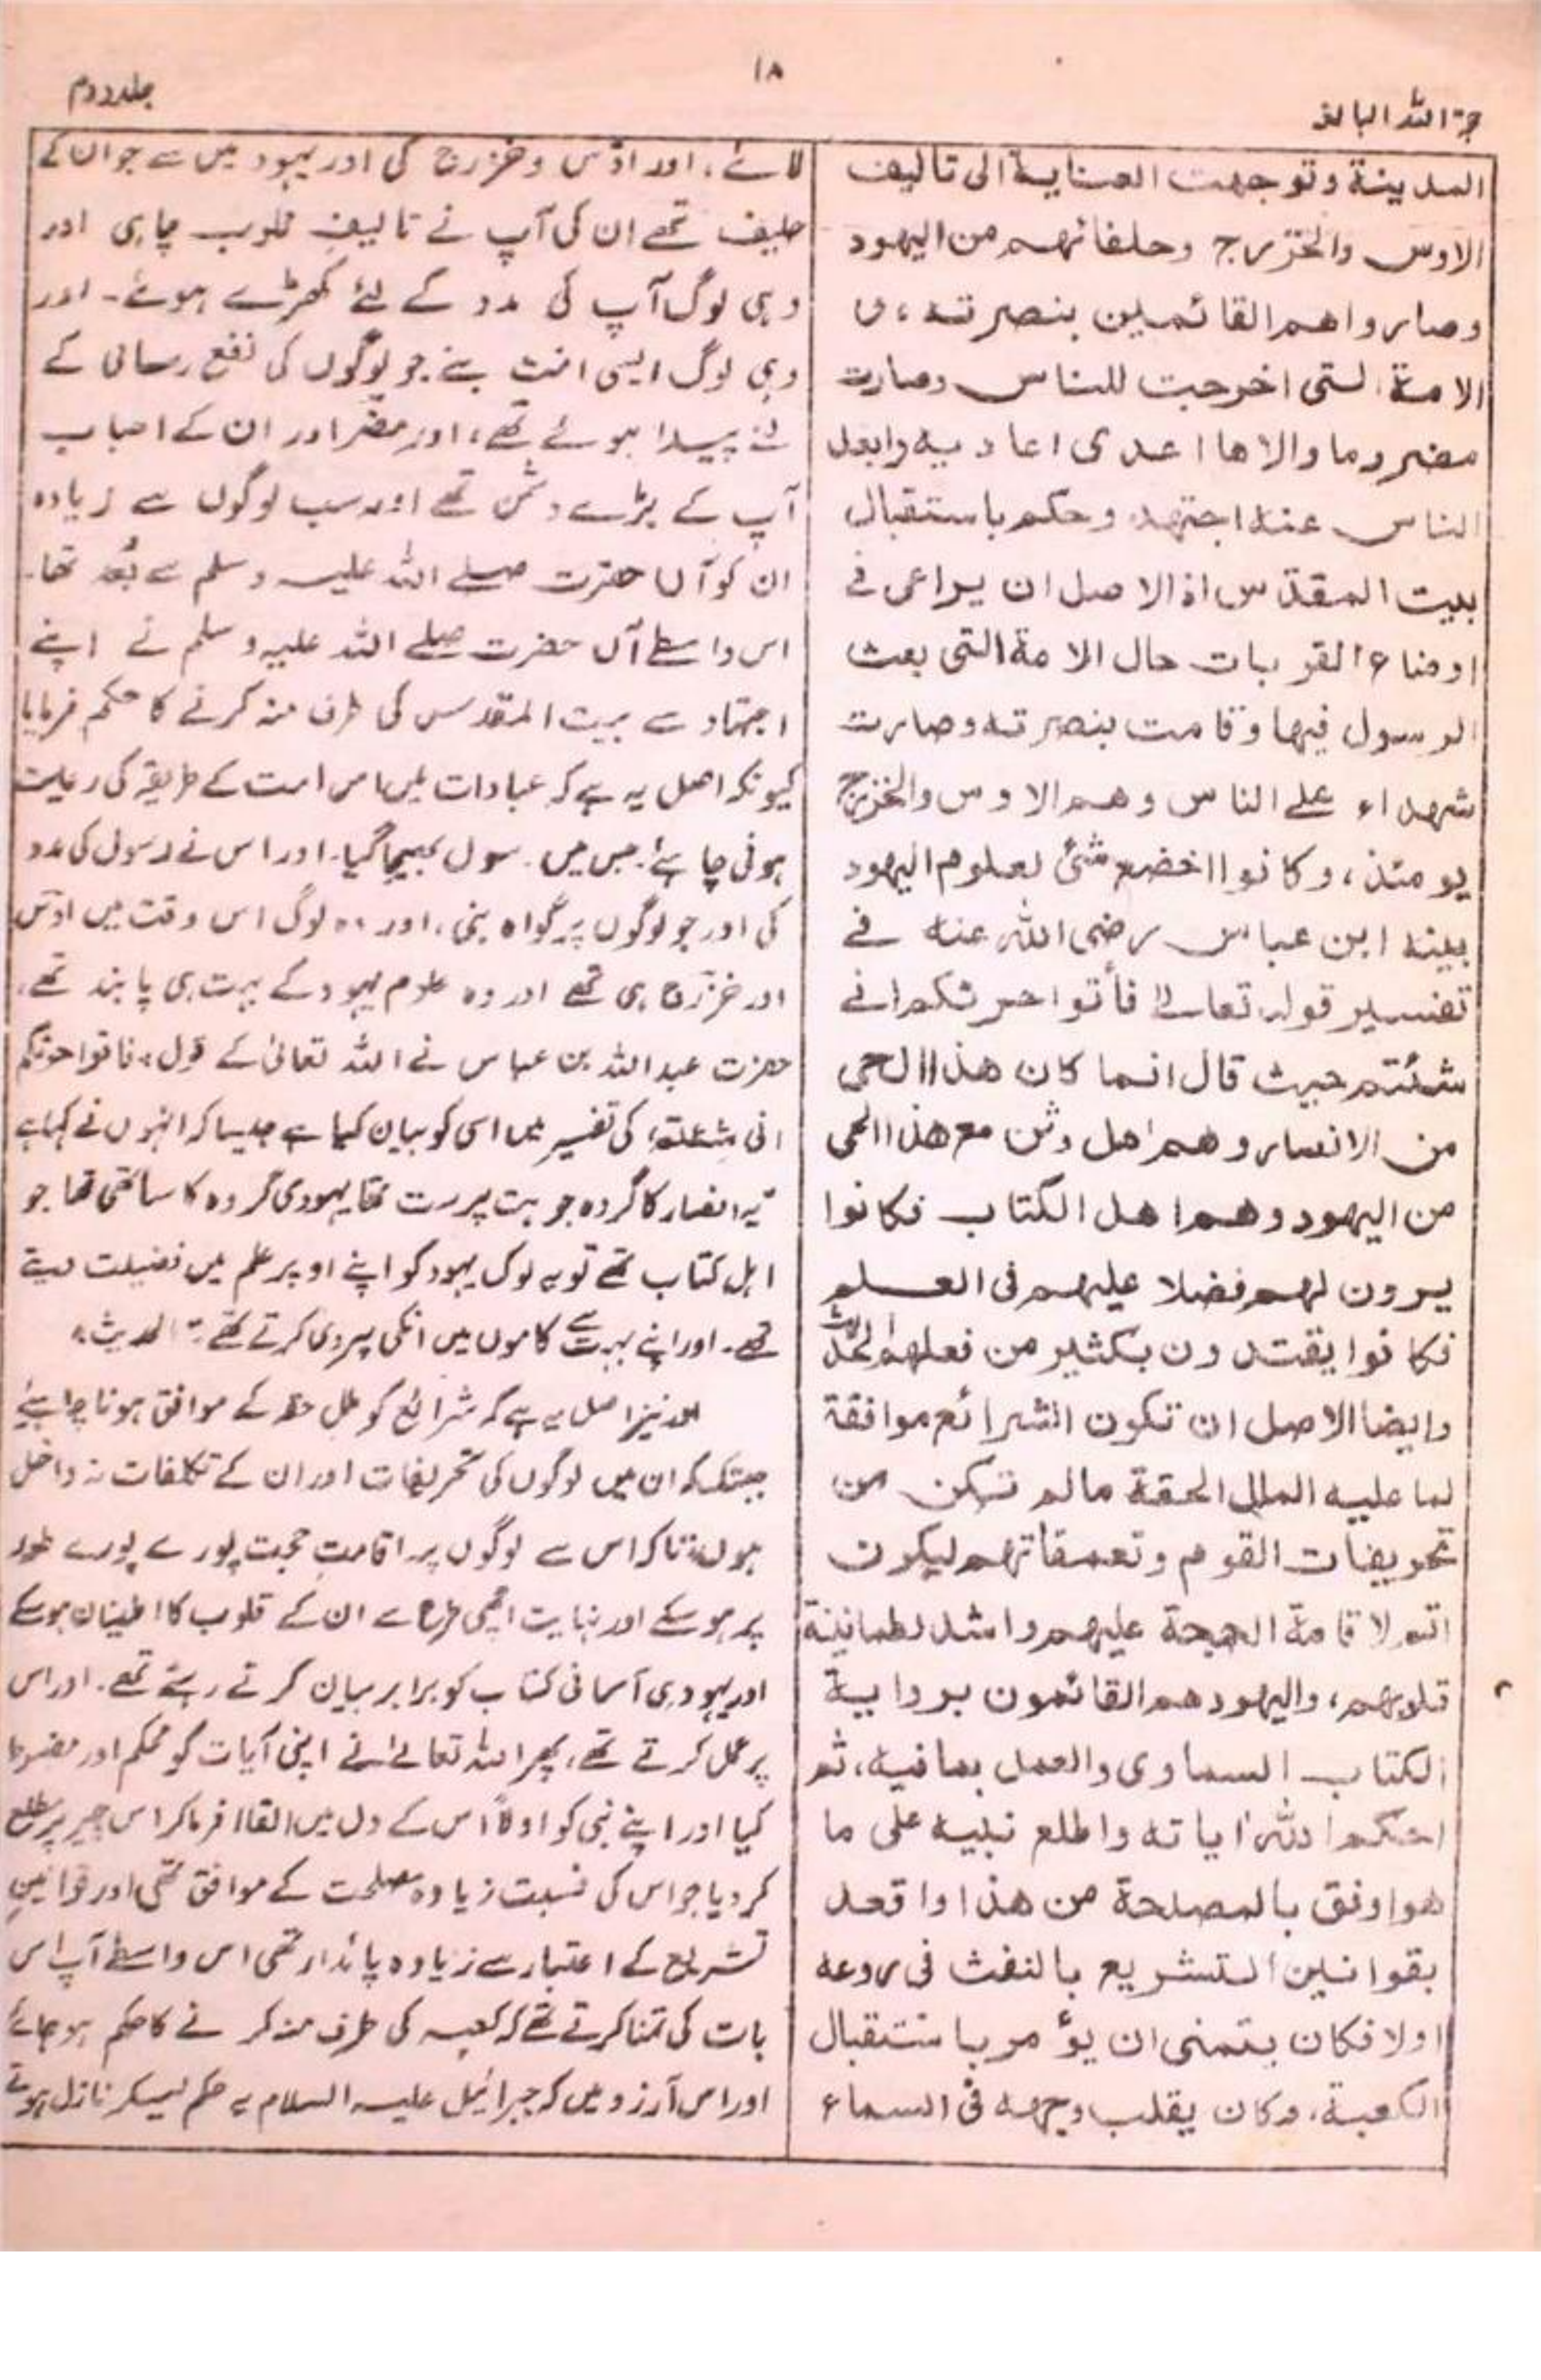 حجۃ اللہ البالغہ
۱۸
جلد دوم
المدينة وتوجهت العناية الى تاليف
الاوس والخزرج وحلفائهم من اليهود
وصاروا هم القائمين بنصرته، و
الامة التى اخرجت للناس وصارت
مضر وما والاها اعدى اعاديه وابعد
الناس عنه اجتهد وحكم باستقبال
بيت المقدس اذ الاصل ان يراعى فى
اوضاع القربات حال الامة التى بعث
الرسول فيها وقامت بنصرته وصارت
شهداء على الناس وهم الاوس والخزرج
يومئذ، وكانوا اخضع شئ لعلوم اليهود
بينه ابن عباس رضى الله عنه فى
تفسير قوله تعالى فأتوا حرثكم انى
شئتم حيث قال انما كان هذا الحى
من الانصار وهم اهل وثن مع هذا الحى
من اليهود وهم اهل الكتاب فكانوا
يرون لهم فضلا عليهم فى العلم
فكانوا يقتدون بكثير من فعلهم الحديث
وايضا الاصل ان تكون الشرائع موافقة
لما عليه الملل الحقة مالم تكن من
تحريفات القوم وتعمقاتهم ليكون
اتم لاقامة الحجة عليهم واشد لطمانينة
قلوبهم، واليهود هم القائمون برواية
الكتاب السماوى والعمل بما فيه، ثم
احكم الله اياته واطلع نبيه على ما
هو اوفق بالمصلحة من هذا واقعد
بقوانين التشريع بالنفث فى روعه
اولا فكان يتمنى ان يؤمر باستقبال
الكعبة، وكان يقلب وجهه فى السماء
لائے، اور اوس و خزرج کی اور یہود میں سے جو ان کے
حلیف تھے ان کی آپ نے تالیف قلوب چاہی اور
وہی لوگ آپ کی مدد کے لئے کھڑے ہوئے۔ اور
وہی لوگ ایسی امت بنے جو لوگوں کی نفع رسانی کے
لئے پیدا ہوئے تھے، اور مضر اور ان کے احباب
آپ کے بڑے دشمن تھے اور سب لوگوں سے زیادہ
ان کو آں حضرت صلے اللہ علیہ وسلم سے بُعد تھا۔
اس واسطے آں حضرت صلے اللہ علیہ وسلم نے اپنے
اجتہاد سے بیت المقدس کی طرف منہ کرنے کا حکم فرمایا
کیونکہ اصل یہ ہے کہ عبادات میں اس امت کے طریقہ کی رعایت
ہونی چاہئے۔ جس میں رسول بھیجا گیا۔ اور اس نے رسول کی مدد
کی اور جو لوگوں پر گواہ بنی، اور وہ لوگ اس وقت میں اوس
اور خزرج ہی تھے اور وہ علوم یہود کے بہت ہی پابند تھے،
حضرت عبد اللہ بن عباس نے اللہ تعالیٰ کے قول، فاتوا حرثکم
انی شئتم، کی تفسیر میں اسی کو بیان کیا ہے جیسا کہ انہوں نے کہا ہے
یہ انصار کا گروہ جو بت پرست تھا یہودی گروہ کا ساتھی تھا جو
اہل کتاب تھے تو یہ لوگ یہود کو اپنے اوپر علم میں فضیلت دیتے
تھے۔ اور اپنے بہت سے کاموں میں انکی پیروی کرتے تھے" الحدیث،
اور نیز اصل یہ ہے کہ شرائع کو ملل حقہ کے موافق ہونا چاہئے
جبتک کہ ان میں لوگوں کی تحریفات اور ان کے تکلفات نہ داخل
ہوں، تاکہ اس سے لوگوں پر اقامت حجت پورے پورے طور
پر ہو سکے اور نہایت اچھی طرح سے ان کے قلوب کا اطمینان ہو سکے
اور یہود ہی آسمانی کتاب کو برابر بیان کرتے رہتے تھے۔ اور اس
پر عمل کرتے تھے، پھر اللہ تعالےٰ نے اپنی آیات کو محکم اور مضبوط
کیا اور اپنے نبی کو اولاً اس کے دل میں القا فرما کر اس چیز پر مطلع
کر دیا جو اس کی نسبت زیادہ مصلحت کے موافق تھی اور قوانین
تشریع کے اعتبار سے زیادہ پائدار تھی اس واسطے آپ اس
بات کی تمنا کرتے تھے کہ کعبہ کی طرف منہ کرنے کا حکم ہو جائے
اور اس آرزو میں کہ جبرائیل علیہ السلام یہ حکم لیکر نازل ہوتے